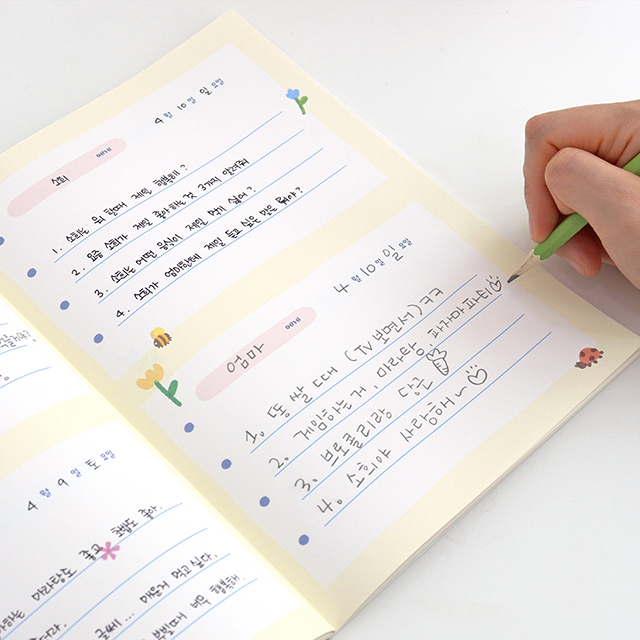 4월 10일 일요일
소희 에게
1. 소희는 뭐 할때 제일 행복해?
2. 요즘 소희가 제일 좋아하는 것 3가지 알려줘
3. 소희는 어떤 음식이 제일 먹기 싫어?
4. 소희가 엄마한테 제일 듣고 싶은 말은 뭐야?
4월 10일 일요일
엄마 에게
1. 똥 쌀 때 (TV 보면서) ㅋㅋ
2. 게임하는 거, 마라탕, 파자마파티
3. 브로콜리랑 당근
4. 소희야 사랑해~
4월 9일 토요일
좋고 책도 좋아.
글쎄... 먹고 싶다.
행복해.